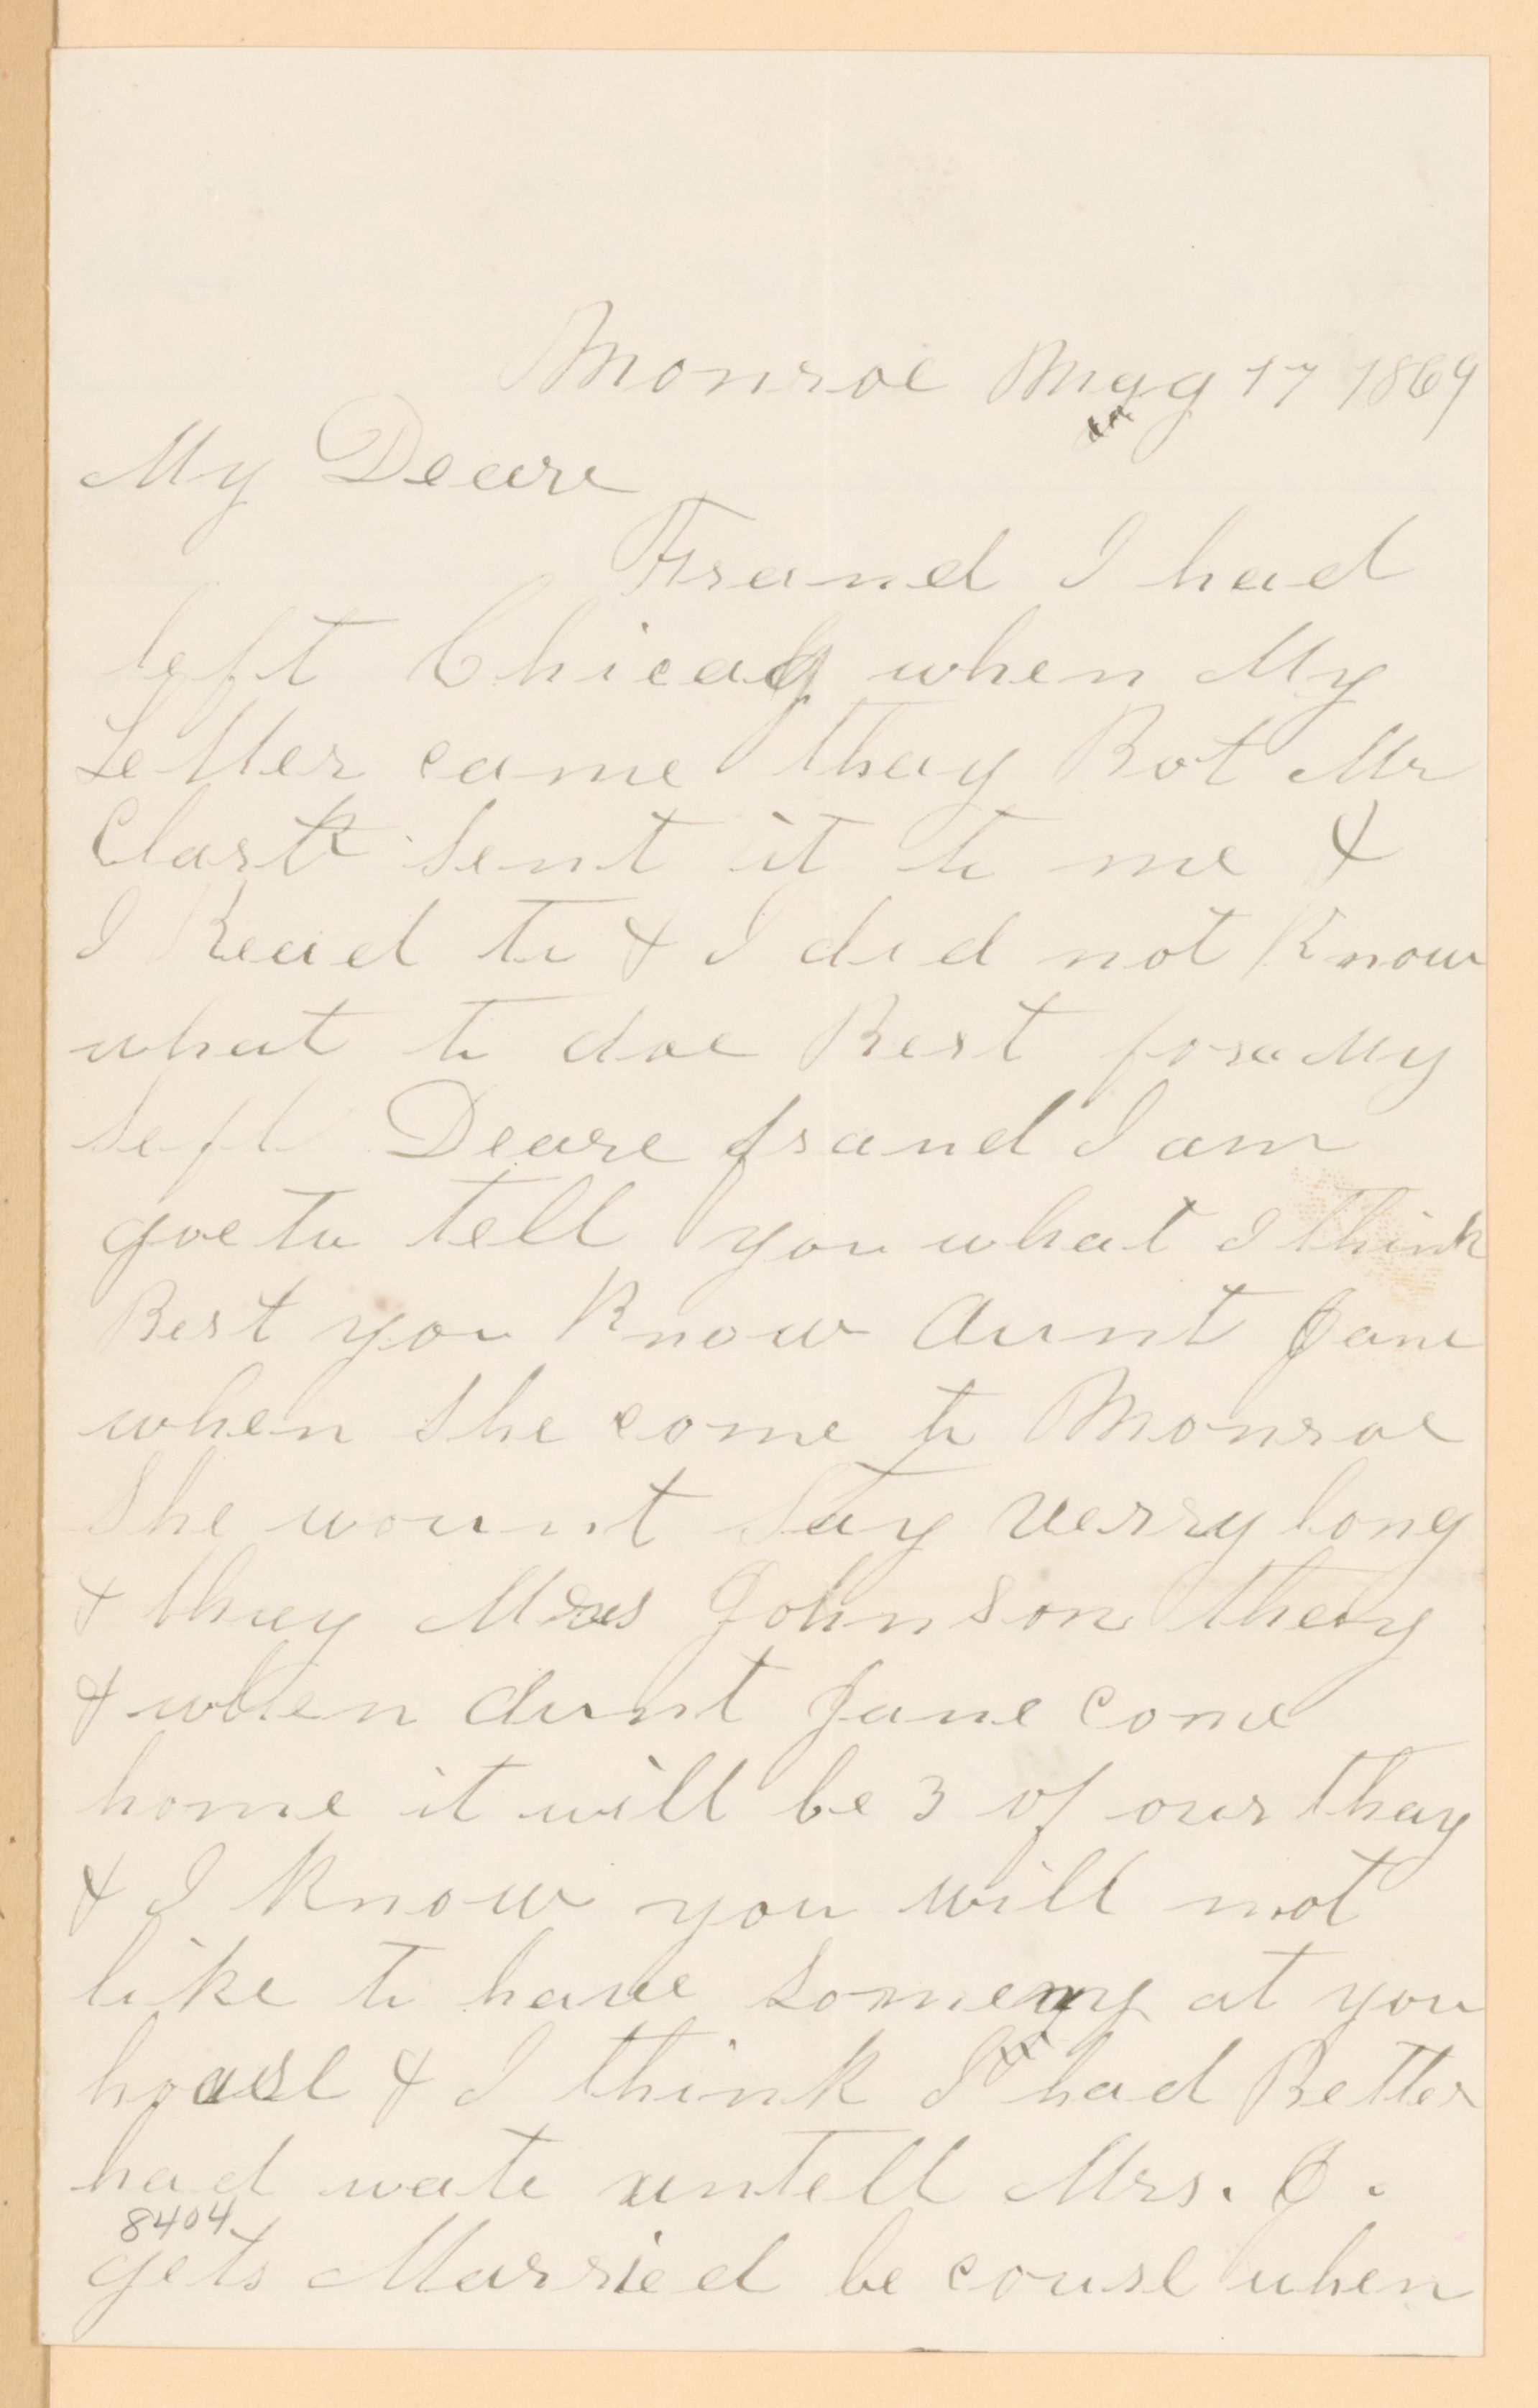 Monroe May 17 1869
My Deare
Frand I had
left Chicag when My
Letter came thay Bot Mr
Clark sent it to me &
I Read to & I did not Know
what to doe Best fore My
sefl Deare frand I am
goe to tell you what I think
Best you Know Aunt Jane
when She come to Monroe
She wount Say verry long
& thay Mrs Johnson thay
& when Aunt Jane come
home it will be 3 of our thay
& I Know you will not
like to have Someny at you
house & I think I had Better
had wate untell Mrs. J.
8404
gets Married be couse when